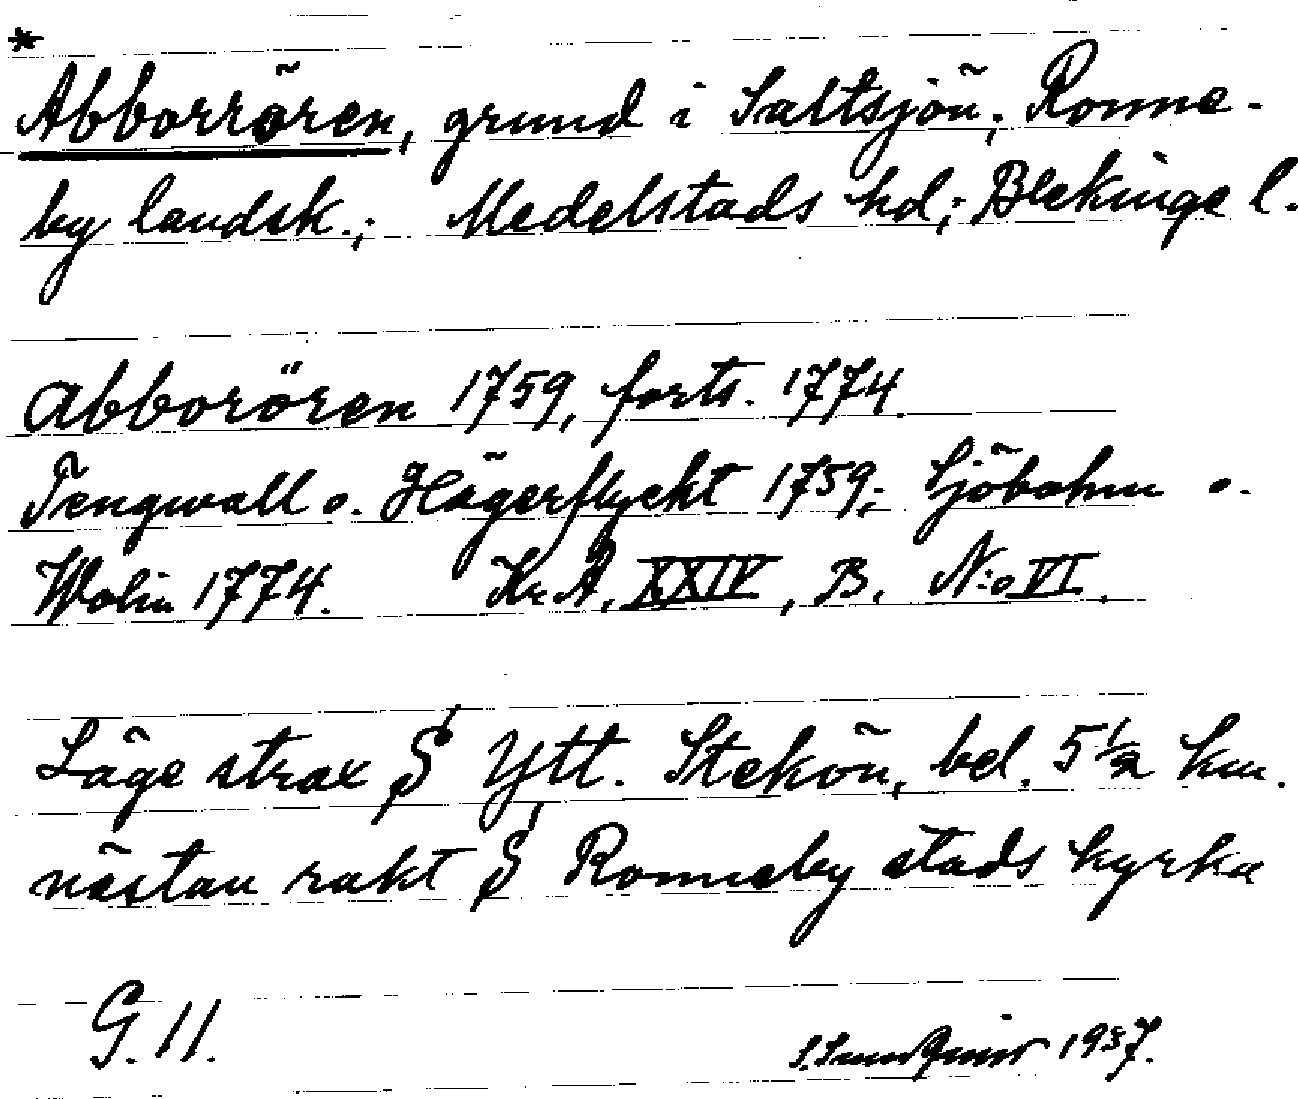 *
Abborrören, grund i Saltsjön; Ronne-
by landsk.; Medelstads hd; Blekinge l.
Abborören 1759, forts. 1774.
Tengwall o. Hägerflycht 1759; Sjöbohm o.
Wolin 1774. Kr.A. XXIV, B. N:o VI.
Läge strax S Ytt. Stekön, bel. 5 1/2 km.
nästan rakt S Ronneby stads kyrka
G. 11. 1937.